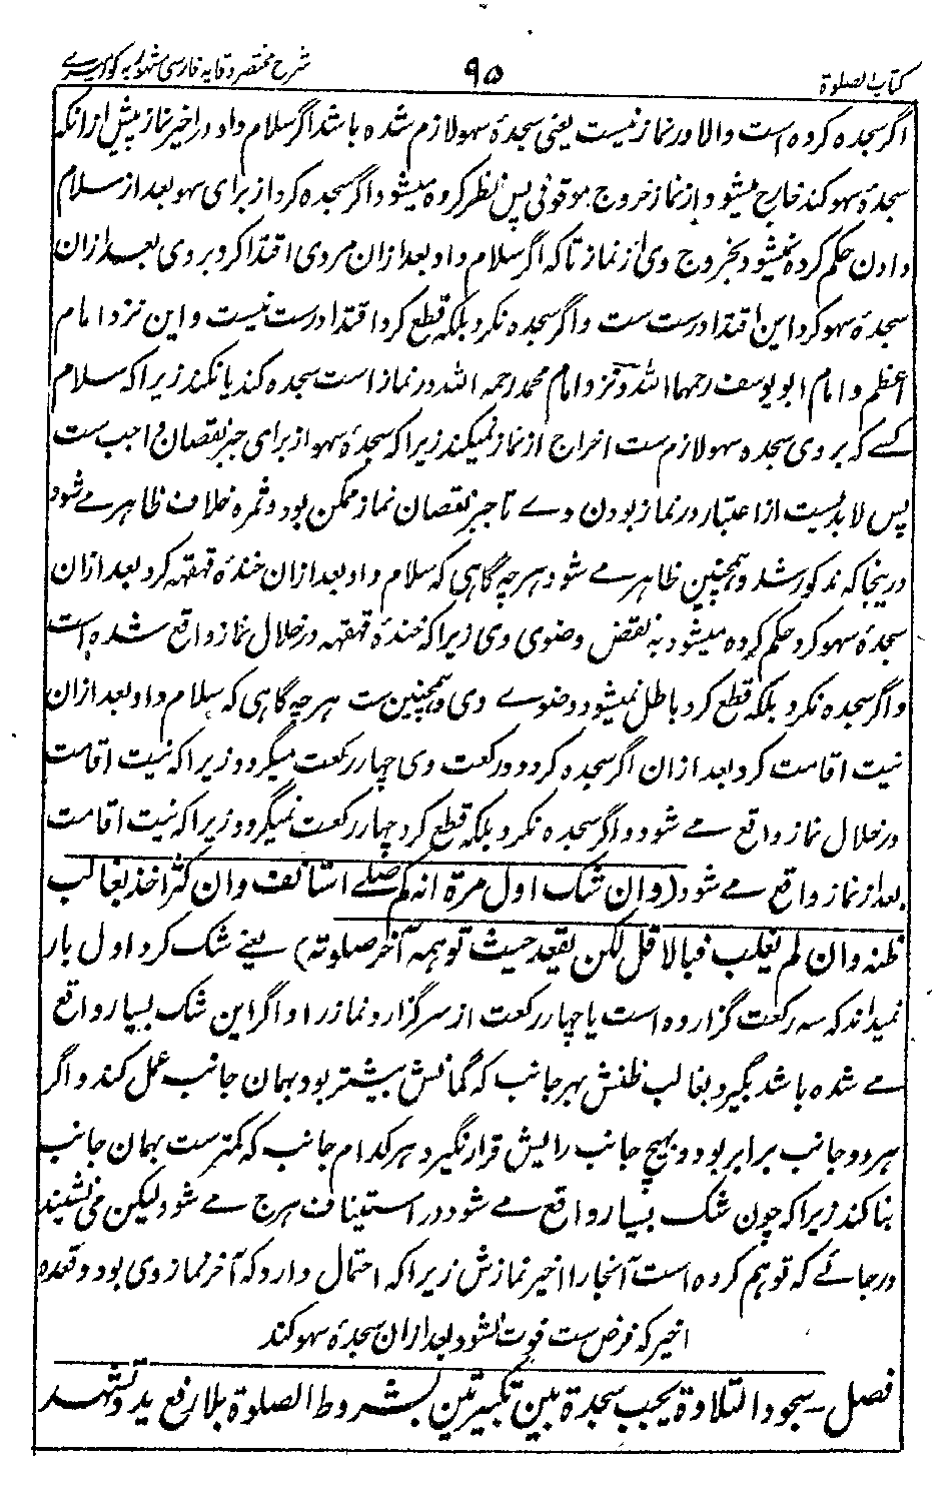 کتاب الصلوة ۹۵ شرح مختصر وقایه فارسی مشهور به کوہسرے
اگر سجده کرده است والا در نماز نیست یعنی سجدهٔ سهو لازم شده باشد اگر سلام داد در اخیر نماز پیش ازانکه
سجدهٔ سهو کند خارج میشود از نماز خروج موقوفی پس نظر کرده میشود اگر سجده کرد از برای سهو بعد از سلام
دادن حکم کرده نمیشود بخروج وی از نماز تا که اگر سلام داد بعد ازان مردی اقتدا کرد بروی بعد ازان
سجدهٔ سهو کرد این اقتدا درست ست و اگر سجده نکرد بلکه قطع کرد اقتدا درست نیست و این نزد امام
اعظم و امام ابو یوسف رحمهما الله و نزد امام محمد رحمه الله در نماز است سجده کند یا نکند زیرا که سلام
کسے که بروی سجده سهو لازم ست اخراج از نماز نمیکند زیرا که سجدهٔ سهو از برای جبر نقصان واجب ست
پس لابدیست از اعتبار در نماز بودن وے تا جبر نقصان نماز ممکن بود و ثمره خلاف ظاهر مے شود
درینجا که مذکور شد و همچنین ظاهر مے شود هرچه گاهی که سلام داد بعد ازان خندهٔ قهقهه کرد بعد ازان
سجدهٔ سهو کرد حکم کرده میشود به نقض وضوی وی زیرا که خندهٔ قهقهه در خلال نماز واقع شده است
و اگر سجده نکرد بلکه قطع کرد باطل نمیشود وضوے وی و همچنین ست هرچه گاهی که سلام داد بعد ازان
نیت اقامت کرد بعد ازان اگر سجده کرد دو رکعت وی چهار رکعت میگردد زیرا که نیت اقامت
در خلال نماز واقع مے شود و اگر سجده نکرد بلکه قطع کرد چهار رکعت نمیگردد زیرا که نیت اقامت
بعد از نماز واقع مے شود (وان شک اول مرة انه کم صلے استانف وان کثر اخذ بغالب
ظنه وان لم یغلب فبالاقل لکن یقعد حیث توهمه آخر صلوته) یعنے شک کرد اول بار
نمیداند که سه رکعت گزارده است یا چهار رکعت از سر گزارد نماز را و اگر این شک بسیار واقع
مے شده باشد بگیرد بغالب ظنش بهر جانب که گمانش بیشتر بود بهمان جانب عمل کند و اگر
هر دو جانب برابر بود و بهیچ جانب رایش قرار نگیرد هر کدام جانب که کمتر ست بهمان جانب
بنا کند زیرا که چون شک بسیار واقع مے شود در استیناف هرج مے شود لیکن می نشیند
در جائے که توهم کرده است آنجا را اخیر نمازش زیرا که احتمال دارد که آخر نماز وی بود و قعده
اخیر که فرض ست فوت نشود بعد ازان سجدهٔ سهو کند
فصل سجود التلاوة یجب سجدة بین تکبیرتین بشروط الصلوة بلا رفع ید و تشهد